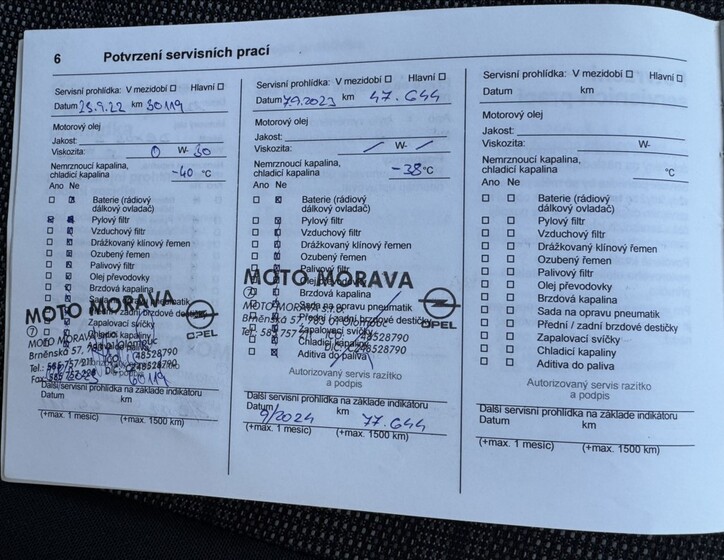 6 Potvrzení servisních prací
Servisní prohlídka: V mezidobí Hlavní
Datum 23.9.22 km 30119
Motorový olej
Jakost:
Viskozita: 0 W- 30
Nemrznoucí kapalina,
chladicí kapalina -40 °C
Ano Ne
Baterie (rádiový
dálkový ovladač)
Pylový filtr
Vzduchový filtr
Drážkovaný klínový řemen
Ozubený řemen
Palivový filtr
Olej převodovky
Brzdová kapalina
Sada na opravu pneumatik
Přední / zadní brzdové destičky
Zapalovací svíčky
Chladicí kapaliny
Aditiva do paliva
MOTO MORAVA
OPEL
MOTO MORAVA
Brněnská 57,
48528790
Tel.: 585 757
CZ48528790
Fax
60119
Další servisní prohlídka na základě indikátoru
Datum km
(+max. 1 měsíc) (+max. 1500 km)
Servisní prohlídka: V mezidobí Hlavní
Datum 7.9.2023 km 47.644
Motorový olej
Jakost:
Viskozita: / W- /
Nemrznoucí kapalina,
chladicí kapalina -38 °C
Ano Ne
Baterie (rádiový
dálkový ovladač)
Pylový filtr
Vzduchový filtr
Drážkovaný klínový řemen
Ozubený řemen
Palivový filtr
Olej převodovky
Brzdová kapalina
Sada na opravu pneumatik
Přední / zadní brzdové destičky
Zapalovací svíčky
Chladicí kapaliny
Aditiva do paliva
MOTO MORAVA
OPEL
MOTO MORAVA s.r.o.
Brněnská 57, 783 01 Olomouc
Tel.: 585 757
48528790
DIČ: CZ48528790
Autorizovaný servis razítko
a podpis
Další servisní prohlídka na základě indikátoru
Datum 9/2024 km 77.644
(+max. 1 měsíc) (+max. 1500 km)
Servisní prohlídka: V mezidobí Hlavní
Datum km
Motorový olej
Jakost:
Viskozita: W-
Nemrznoucí kapalina,
chladicí kapalina °C
Ano Ne
Baterie (rádiový
dálkový ovladač)
Pylový filtr
Vzduchový filtr
Drážkovaný klínový řemen
Ozubený řemen
Palivový filtr
Olej převodovky
Brzdová kapalina
Sada na opravu pneumatik
Přední / zadní brzdové destičky
Zapalovací svíčky
Chladicí kapaliny
Aditiva do paliva
Autorizovaný servis razítko
a podpis
Další servisní prohlídka na základě indikátoru
Datum km
(+max. 1 měsíc) (+max. 1500 km)